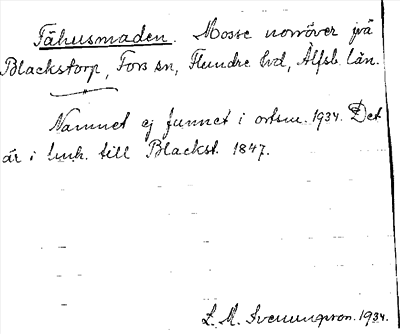 Fähusmaden. Mosse norröver på
Blackstorp, Fors sn, Flundre hd, Älfsb. län.
Namnet ej funnet i ortsn. 1934. Det
är i luk. till Blackst. 1847.
L. M. Svenungsson. 1934.